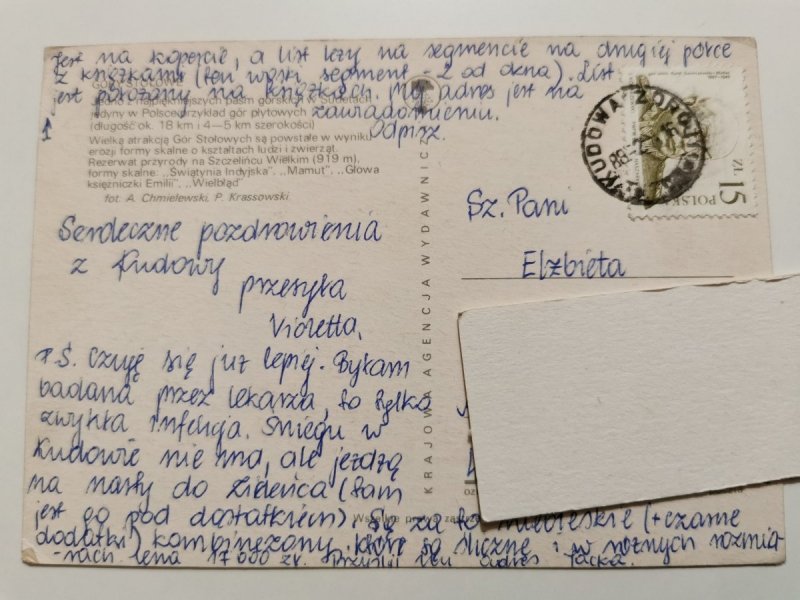 jest na kopercie, a list leży na segmencie na drugiej półce
z książkami (ten wąski segment - 2 od okna). List
jest położony na książkach. Mój adres jest na
zawiadomieniu.
Odpisz.
Jedno z najpiękniejszych pasm górskich w Sudetach
jedyny w Polsce przykład gór płytowych
(długość ok. 18 km i 4—5 km szerokości)
Wielką atrakcją Gór Stołowych są powstałe w wyniku
erozji formy skalne o kształtach ludzi i zwierząt.
Rezerwat przyrody na Szczelińcu Wielkim (919 m),
formy skalne: „Świątynia Indyjska", „Mamut", „Głowa
księżniczki Emilii", „Wielbłąd"
fot. A. Chmielewski, P. Krassowski
Serdeczne pozdrowienia
z Kudowy
przesyła
Violetta.
P.S. Czuję się już lepiej. Byłam
badana przez lekarza, to tylko
zwykła infekcja. Śniegu w
Kudowie nie ma, ale jeżdżą
na narty do Zieleńca (tam
jest go pod dostatkiem). Są za to niebieskie (+czarne
dodatki) kombinezony, które są śliczne i w różnych rozmia-
-rach cena 17 000 zł. Przyślij ten adres Jacka.
KRAJOWA AGENCJA WYDAWNICZA
KUDOWA ZDRÓJ
POLSKA
ZŁ 15
Sz. Pani
Elżbieta